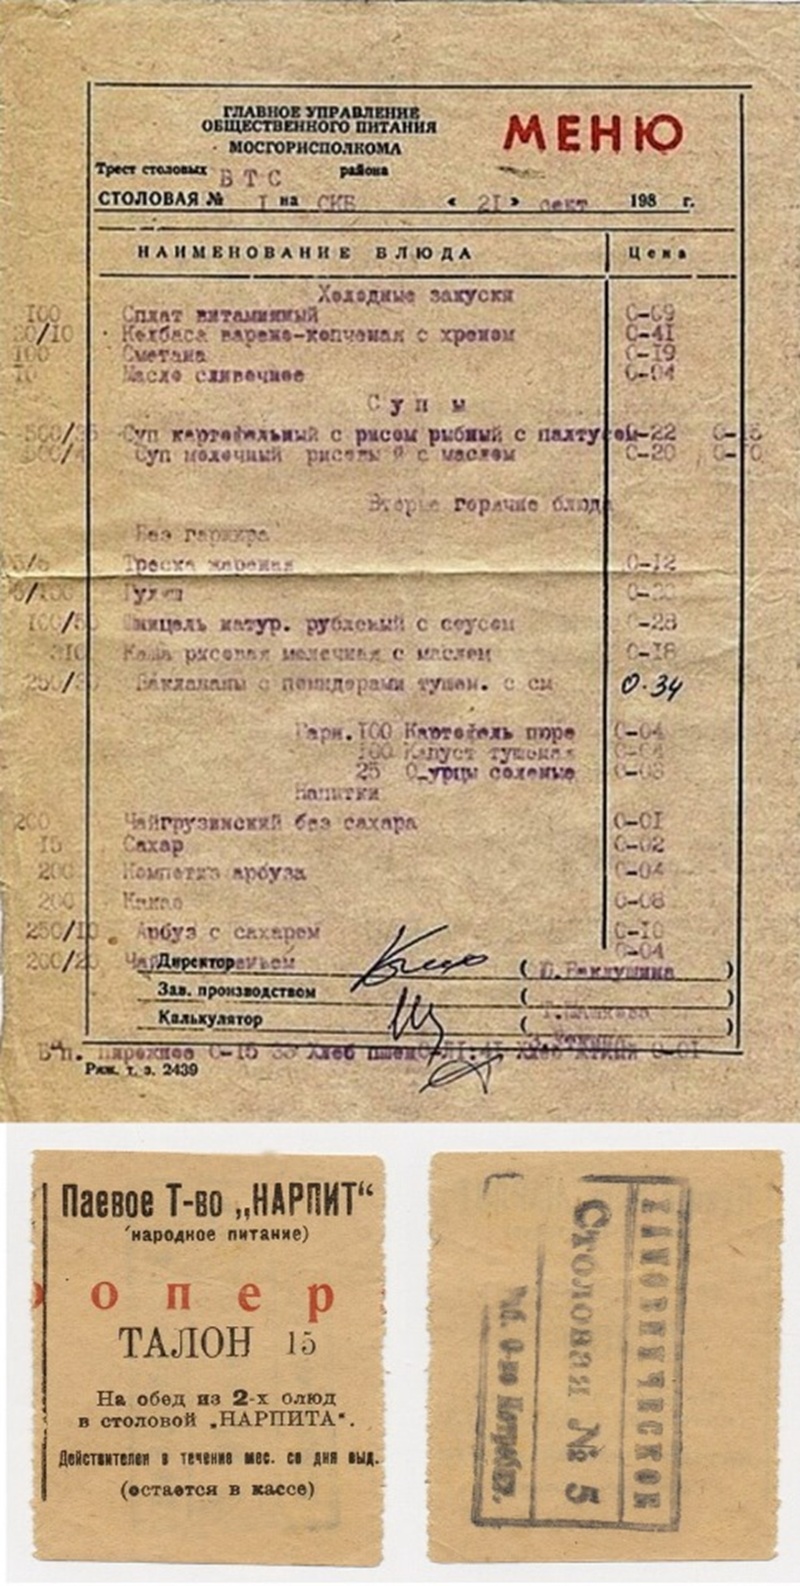 ГЛАВНОЕ УПРАВЛЕНИЕ
ОБЩЕСТВЕННОГО ПИТАНИЯ
МОСГОРИСПОЛКОМА
МЕНЮ
Трест столовых ВТС района
СТОЛОВАЯ № I на СКБ « 21 » сент 198 г.
НАИМЕНОВАНИЕ БЛЮДА Цена
Холодные закуски
100 Сплат витаминный 0-09
/10 Колбаса варено-копченая с хреном 0-41
100 Сметана 0-19
10 Масло сливочное 0-04
Супы
500/ Суп картофельный с рисом рыбный с палтусом 0-22
Суп молочный рисовый с маслом 0-20
Вторые горячие блюда
Без гарнира
Треска жареная 0-12
Гуляш
100/50 Шницель натур. рубленый с соусом 0-28
310 Каша рисовая молочная с маслом 0-18
250/ Баклажаны с помидорами тушен. с см 0-34
Гарн. 100 Картофель пюре 0-04
100 Капуст тушеная 0-04
25 О_урцы соленые
Напитки
200 Чайгрузинский без сахара 0-01
15 Сахар 0-02
200 Компотиз арбуза 0-04
200 Какао 0-08
250/10 Арбуз с сахаром 0-10
200/20 Чай 0-04
Директор ( )
Зав. производством ( )
Калькулятор ( )
Пирожное 0-15 Хлеб 0-01
Ряж. т. з. 2439
Паевое Т-во „НАРПИТ“
народное питание)
опер
ТАЛОН 15
На обед из 2-х блюд
в столовой „НАРПИТА“.
Действителен в течение мес. со дня выд.
(остается в кассе)
Столовая № 5